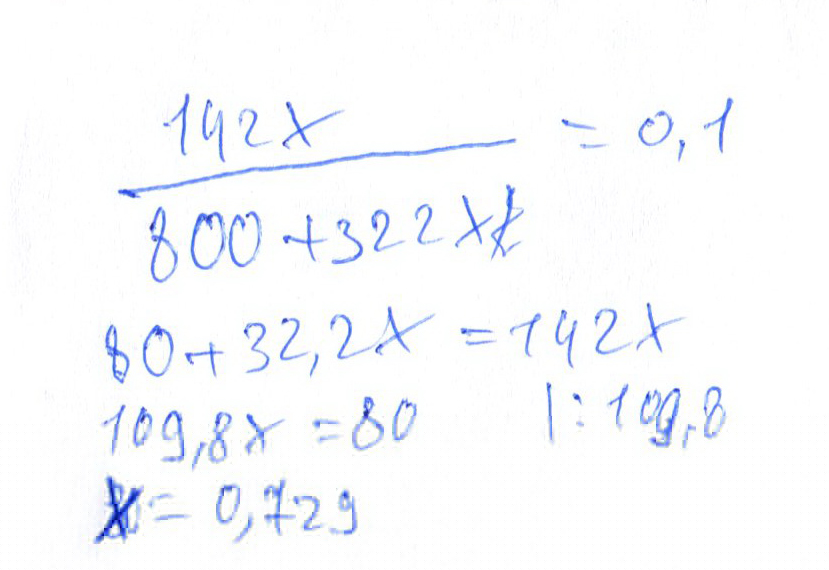 142x = 0,1
800+322x
80+32,2x = 142x
109,8x = 80 |: 109,8
x = 0,729